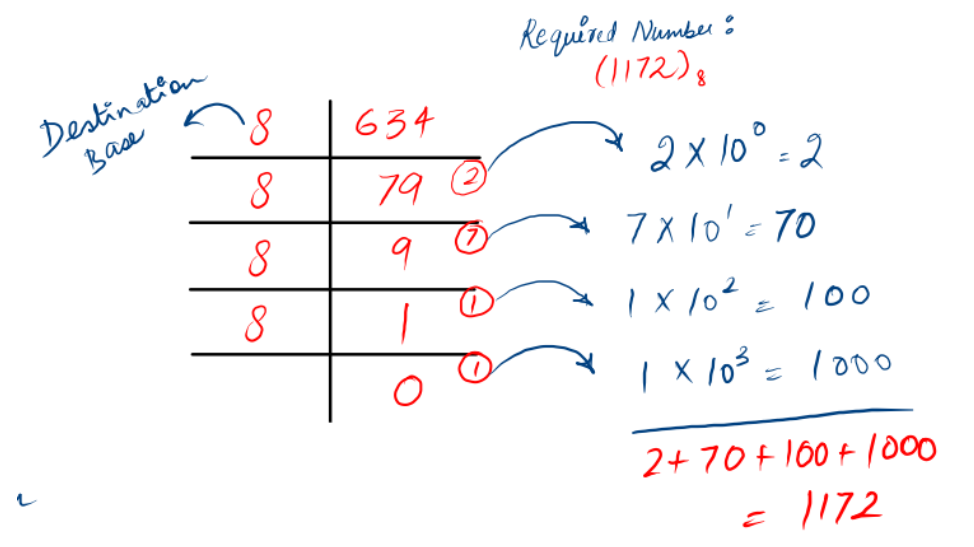 Required Number:
(1172)₈
Destination
Base
8 634
8 79 2
8 9 7
8 1 1
0 1
2 × 10⁰ = 2
7 × 10¹ = 70
1 × 10² = 100
1 × 10³ = 1000
2 + 70 + 100 + 1000
= 1172